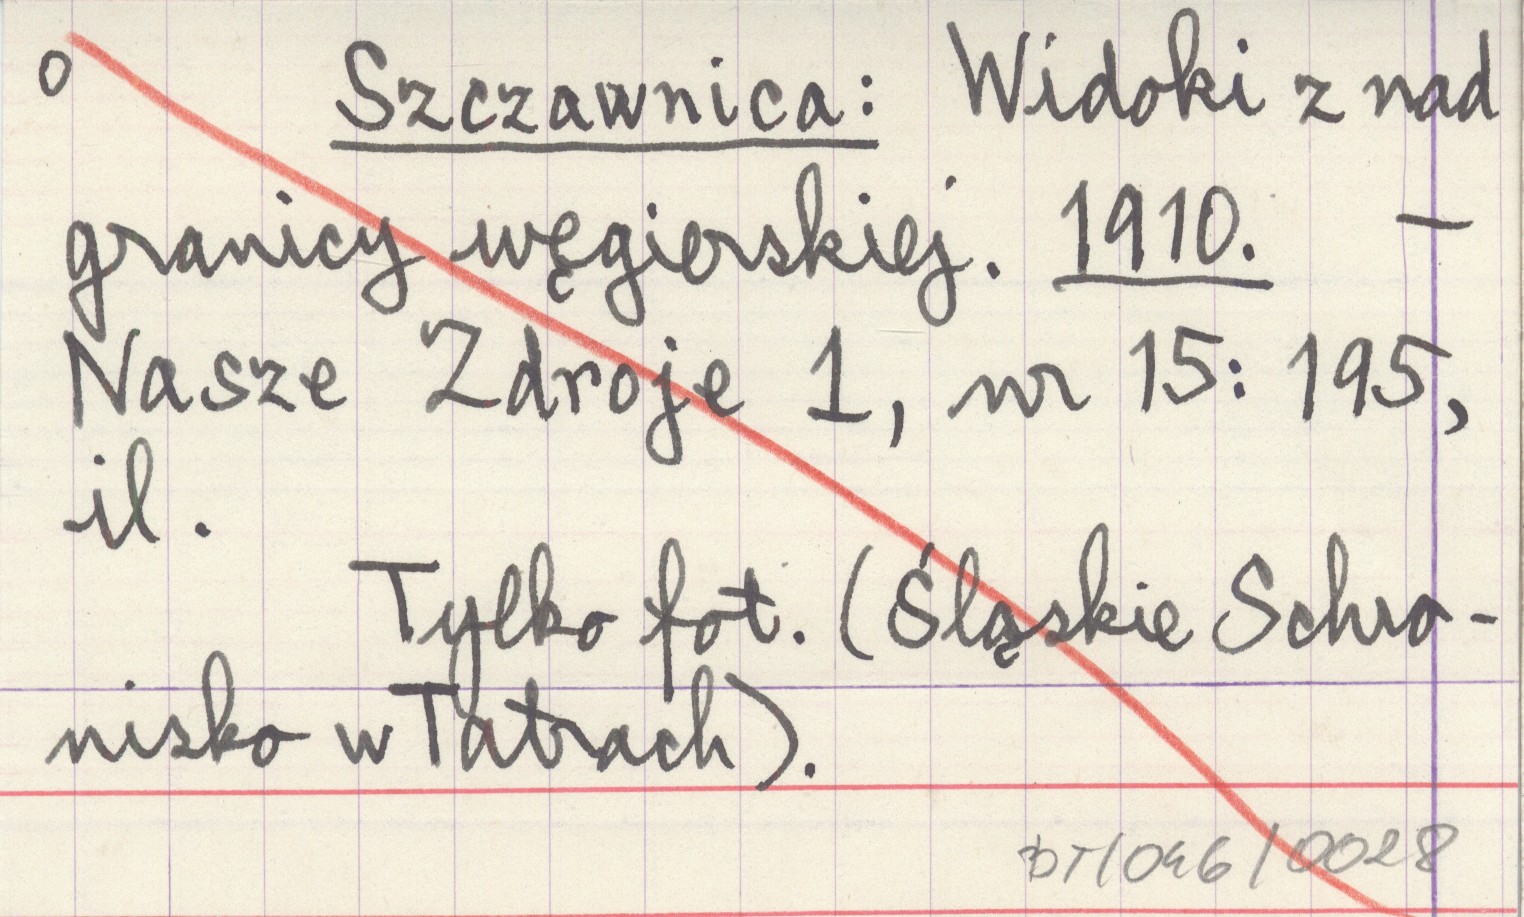 o Szczawnica: Widoki z nad
granicy węgierskiej. 1910. –
Nasze Zdroje 1, nr 15: 195,
il.
Tylko fot. (Śląskie Schro-
nisko w Tatrach).
BT/046/0028